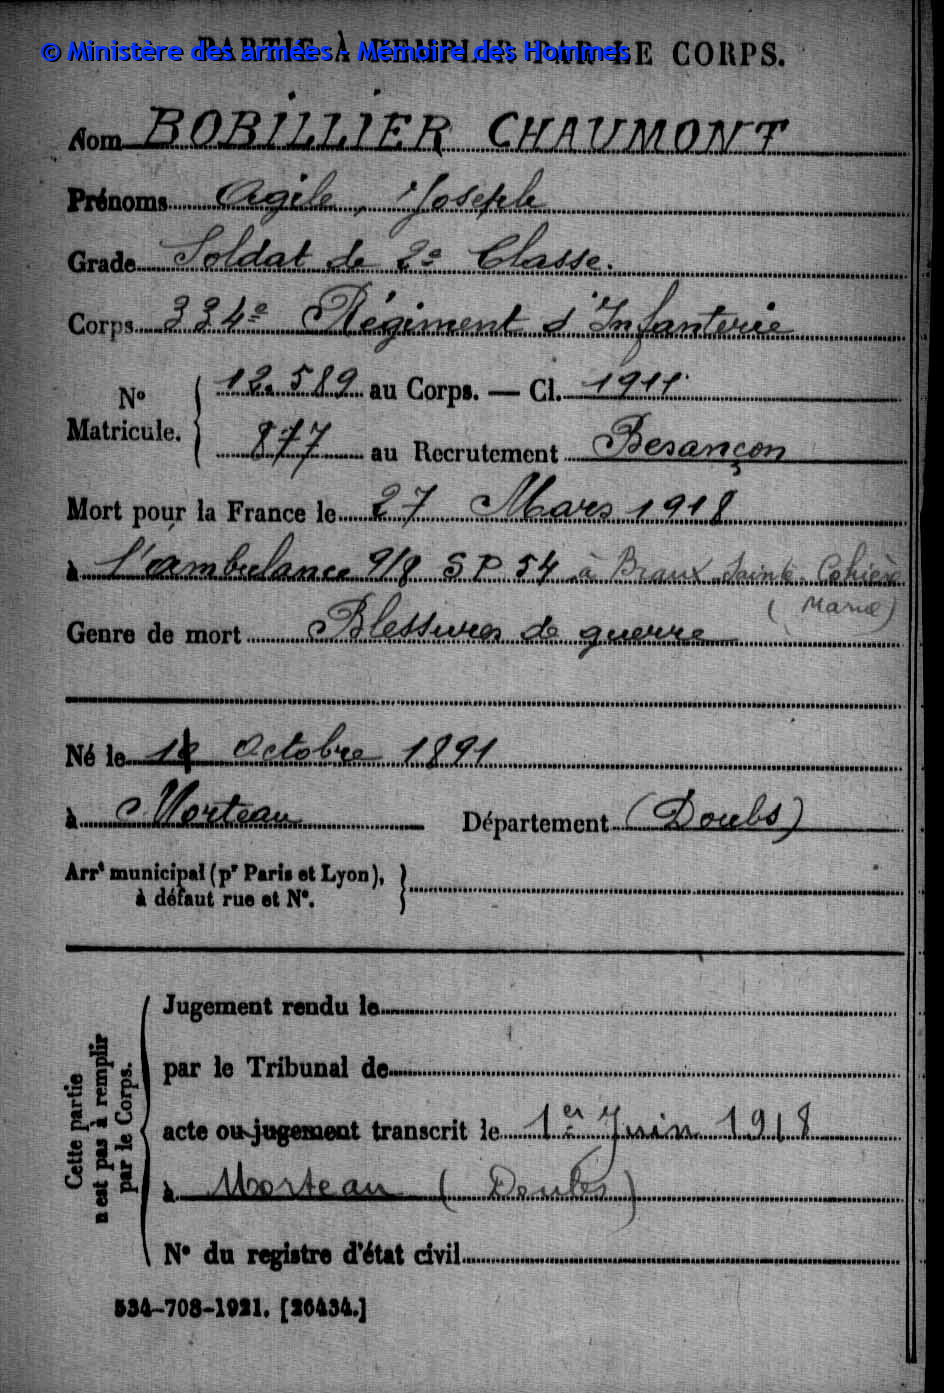 © Ministère des armées - Mémoire des Hommes
PARTIE À REMPLIR PAR LE CORPS.
Nom BOBILLIER CHAUMONT
Prénoms Agile, Joseph
Grade Soldat de 2e Classe.
Corps 334e Régiment d'Infanterie
N° Matricule. 12.589 au Corps. — Cl. 1911
877 au Recrutement Besançon
Mort pour la France le 27 Mars 1918
à l'ambulance 9/8 SP 54 à Braux Sainte Cohière
(Marne)
Genre de mort Blessures de guerre
Né le Octobre 1891
à Morteau Département (Doubs)
Arrt municipal (pr Paris et Lyon),
à défaut rue et N°.
Cette partie
n'est pas à remplir
par le Corps.
Jugement rendu le
par le Tribunal de
acte ou jugement transcrit le 1er Juin 1918
à Morteau (Doubs)
N° du registre d'état civil
534-708-1921. [26434.]